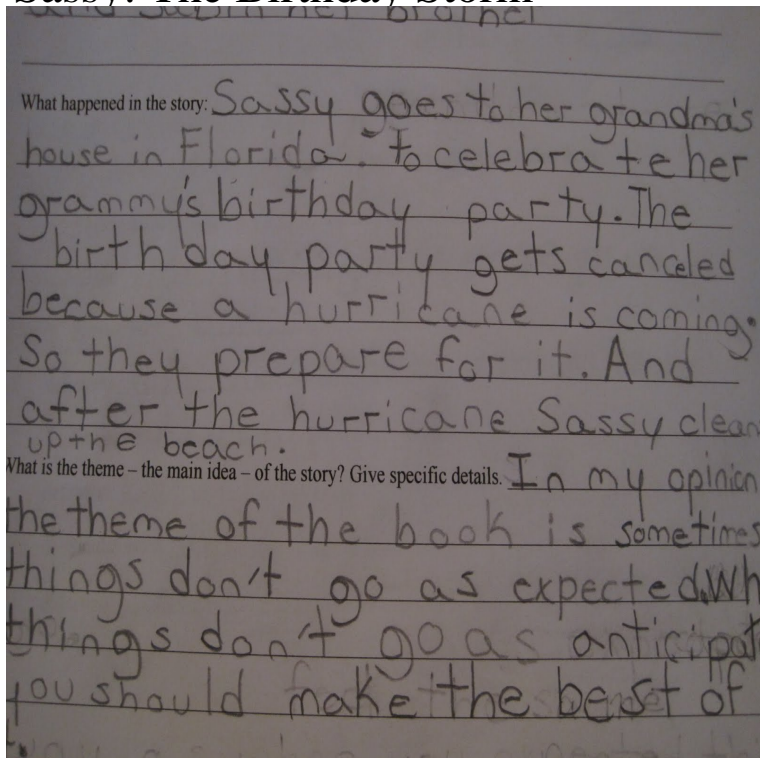 Sassy: The Birthday Storm
and Sabin her brother
What happened in the story: Sassy goes to her grandma's
house in Florida. to celebrate her
grammy's birthday party. The
birthday party gets canceled
because a hurricane is coming.
So they prepare for it. And
after the hurricane Sassy clean
up the beach.
What is the theme – the main idea – of the story? Give specific details. In my opinion
the theme of the book is sometimes
things don't go as expected. Wh
things don't go as anticipat
you should make the best of